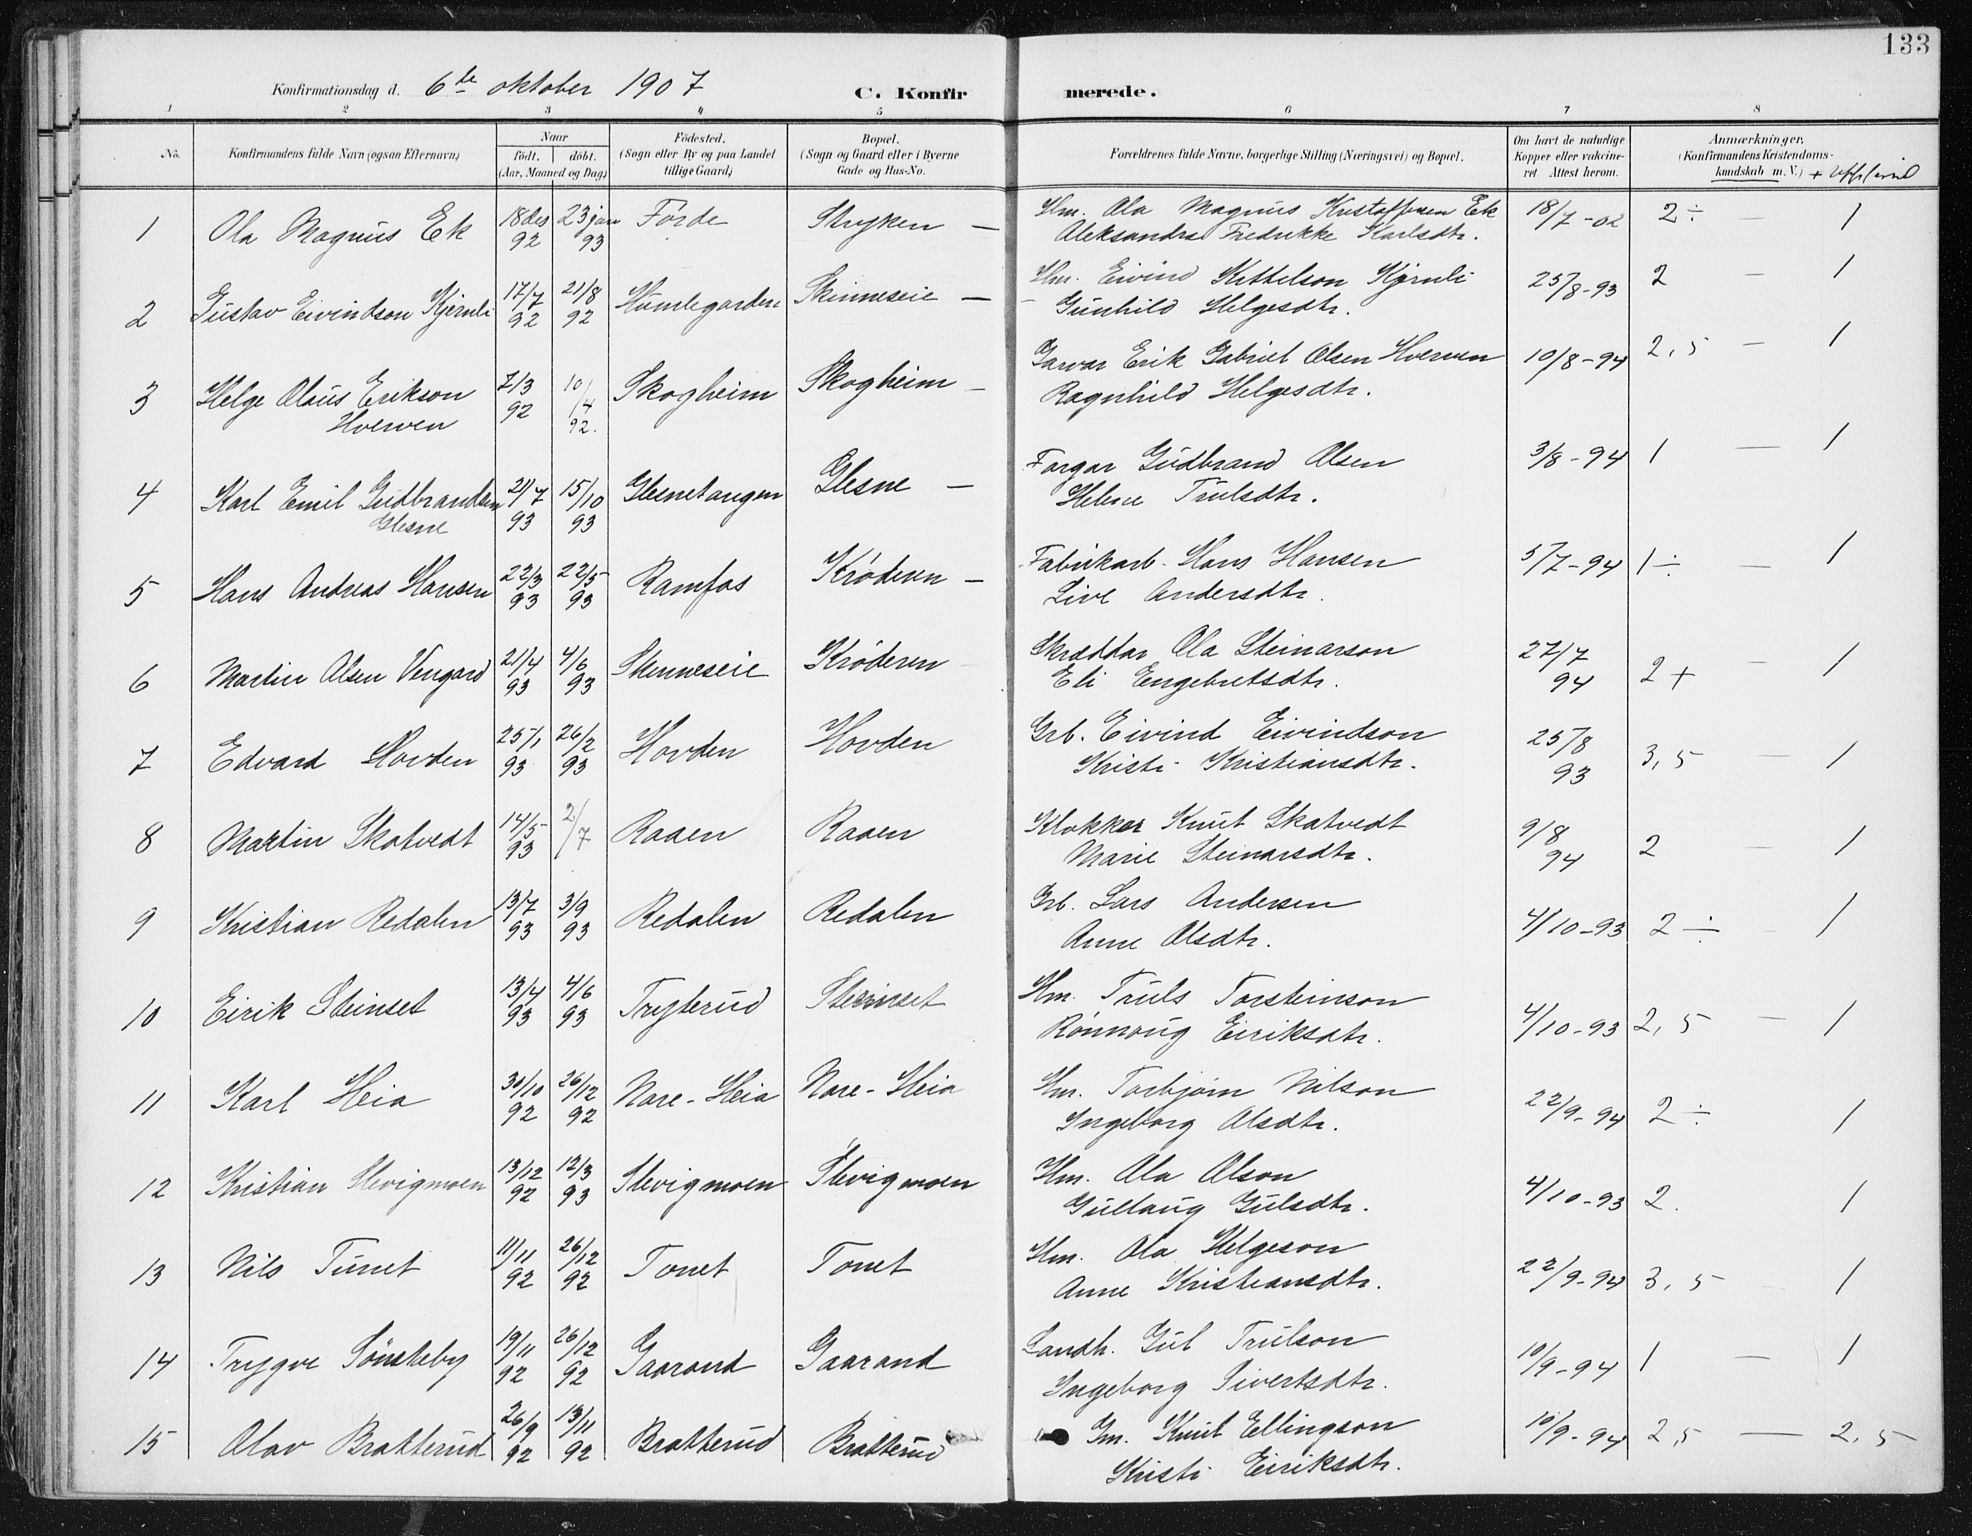 133
Konfirmationsdag d. 6te oktober 1907 C. Konfirmerede.
1 2 3 4 5 6 7 8
No. Konfirmandens fulde Navn (ogsaa Efternavn) Naar født. døbt. (Aar, Maaned og Dag) Fødested. (Sogn eller By og paa Landet tillige Gaard) Bopæl. (Sogn og Gaard eller i Byerne Gade og Hus-No. Forældrenes fulde Navne, borgerlige Stilling (Næringsvei) og Bopæl. Om havt de naturlige Kopper eller vakcineret. Attest herom. Anmærkninger. (Konfirmandens Kristendomskundskab m. V.)
1 Ola Magnus Ek 18 des 92 23 jan 93 Førde Stryken — Hm. Ola Magnus Kristoffersen Ek 18/7-02 2÷ — 1
Aleksandra Fredrikke Karlsdtr.
2 Gustav Eivindson Kjernli 17/7 92 21/8 92 Humlegarden Skinneseie — Hm. Eivind Kittelson Kjernli 25/8-93 2 — 1
Gunhild Helgesdtr.
3 Helge Olaus Erikson Hverven 7/3 92 10/4 92. Skogheim Skogheim — Garvar Erik Gabriel Olsen Hverven 10/8-94 2,5 — 1
Ragnhild Helgesdtr.
4 Karl Emil Gudbrandsen Glesne 21/7 93 15/10 93 Glesnetangen Glesne — Forgar Gudbrand Olsen 3/8-94 1 — 1
Helene Trulsdtr.
5 Hans Andreas Hansen 22/3 93 22/5 93 Ramfos Krøderen — Fabrikarb. Hans Hansen 5/7-94 1÷ — 1
Live Andersdtr.
6 Martin Olsen Vengard 21/4 93 4/6 93 Stenneseie Krøderen Skræddar Ola Steinarson 27/7 94 2+ — 1
Eli Engebretsdtr.
7 Edvard Hovden 25/1 93 26/2 93 Hovden Hovden Grb. Eivind Eivindson 25/8 93 3,5 — 1
Kristi Kristiansdtr.
8 Martin Skatvedt 14/5 93 2/7 Raaen Raaen Klokker Knut Skatvedt 9/8 94 2 — 1
Marie Steinarsdtr.
9 Kristian Redalen 13/7 93 3/9 93 Redalen Redalen Grb. Lars Andersen 4/10-93 2÷ - 1
Anne Olsdtr.
10 Eirik Steinset 13/4 93 4/6 93 Tryterud Steinset Hm. Truls Torsteinson 4/10-93 2,5 — 1
Rønnoug Eiriksdtr.
11 Karl Heia 30/10 92 26/12 92 Nore-Heia Nore-Heia Hm. Torbjørn Nilson 22/9-94 2÷ 1
Ingeborg Olsdtr.
12 Kristian Slevigmoen 13/12 92 12/3 93 Slevigmoen Slevigmoen Hm. Ola Olson 4/10-93 2. 1
Gullaug Gulsdtr.
13 Nils Tunet 11/11 92 26/12 92 Tonet Tonet Hm. Ola Helgeson 22/9-94 3,5 1
Anne Kristiansdtr.
14 Trygve Sønsteby 19/11 92 26/12 92 Gaarand Gaarand Landh. Gul Trulson 10/9-94 1 — 1
Ingeborg Sivertsdtr.
15 Olav Bratterud 26/9 92 13/11 92 Bratterud Bratterud Gm. Knut Ellingson 10/9-94 2,5 — 2,5
Kristi Eiriksdtr.